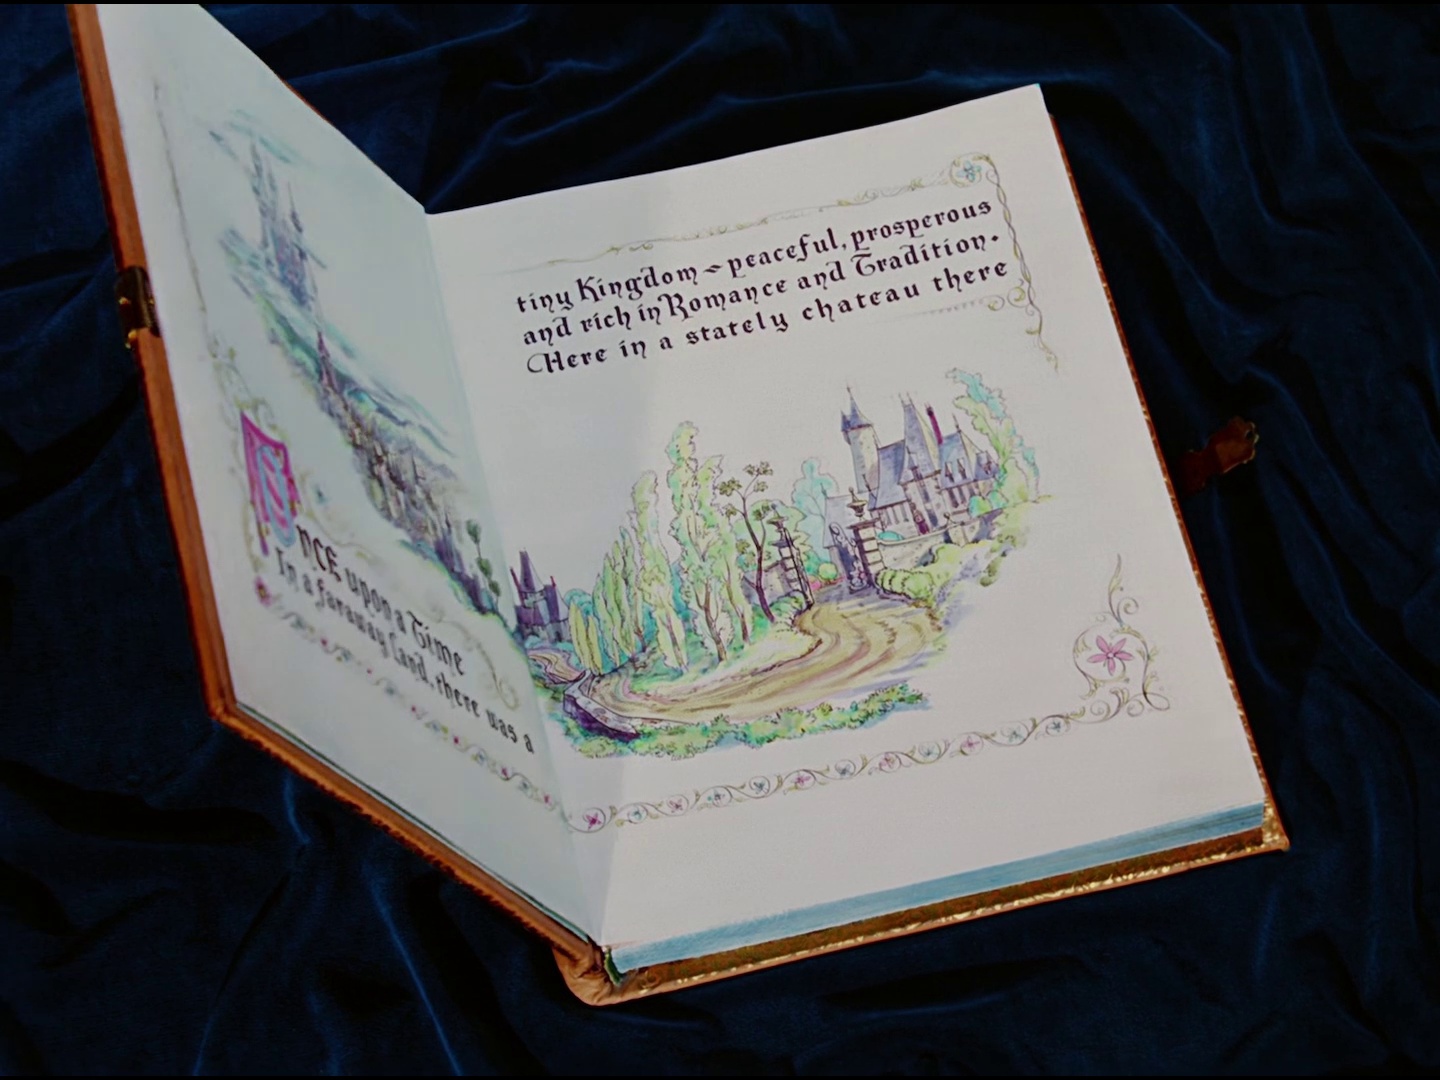 ONCE upon a Time
In a faraway Land, there was a
tiny Kingdom ~ peaceful, prosperous
and rich in Romance and Tradition.
Here in a stately chateau there